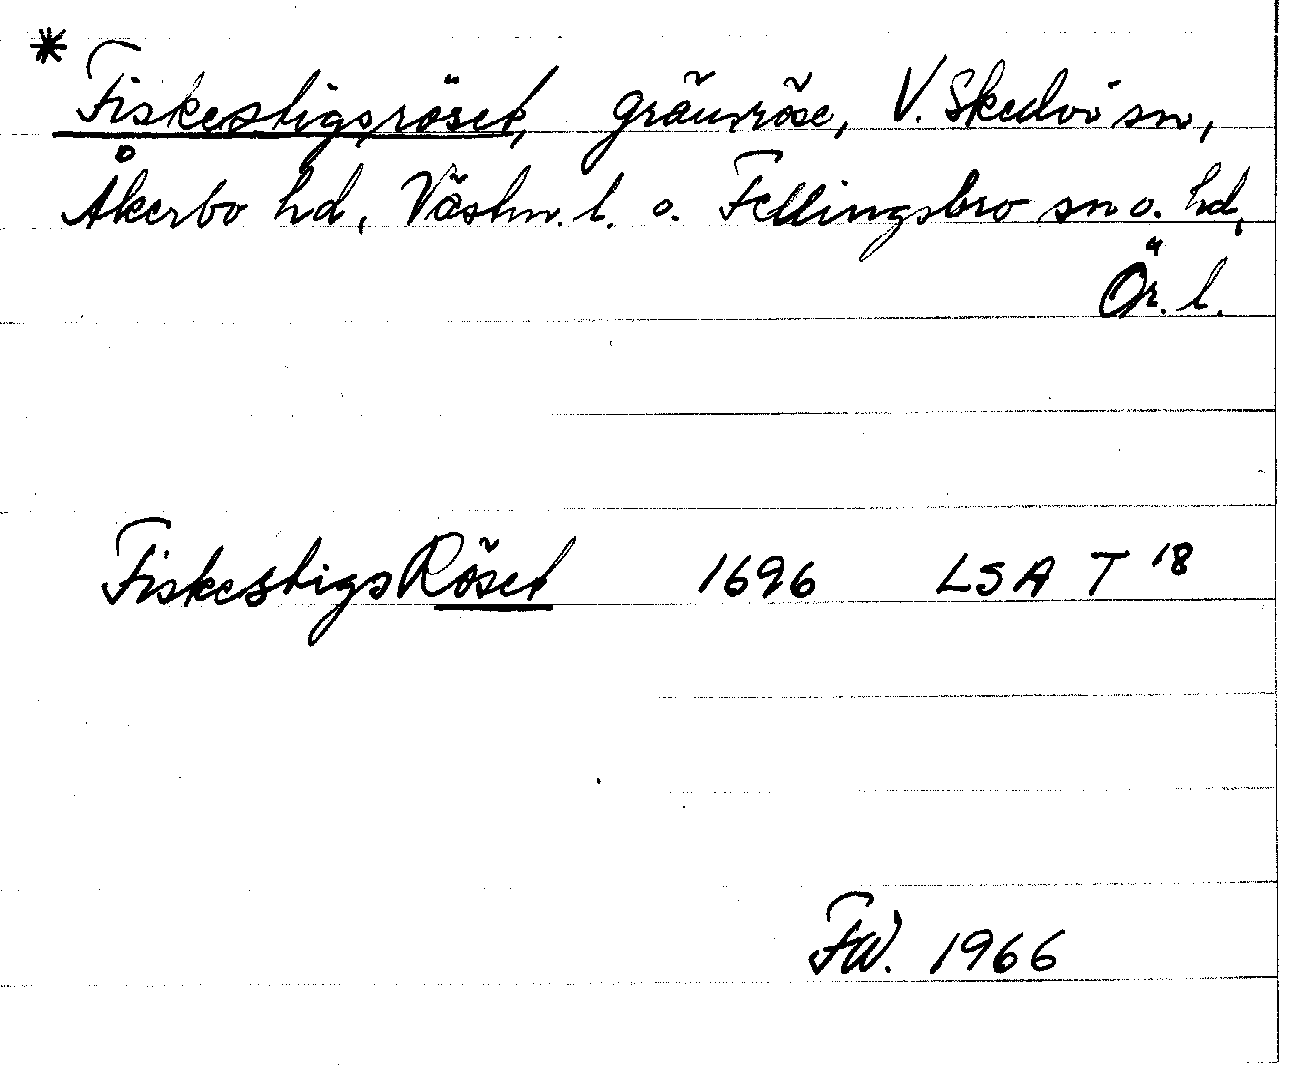 * Fiskestigsröset, gränsröse, V. Skedvi sn,
Åkerbo hd, Västm. l. o. Fellingsbro sn o. hd,
Ör. l.
FiskestigsRöset 1696 LSA T 18
FW. 1966